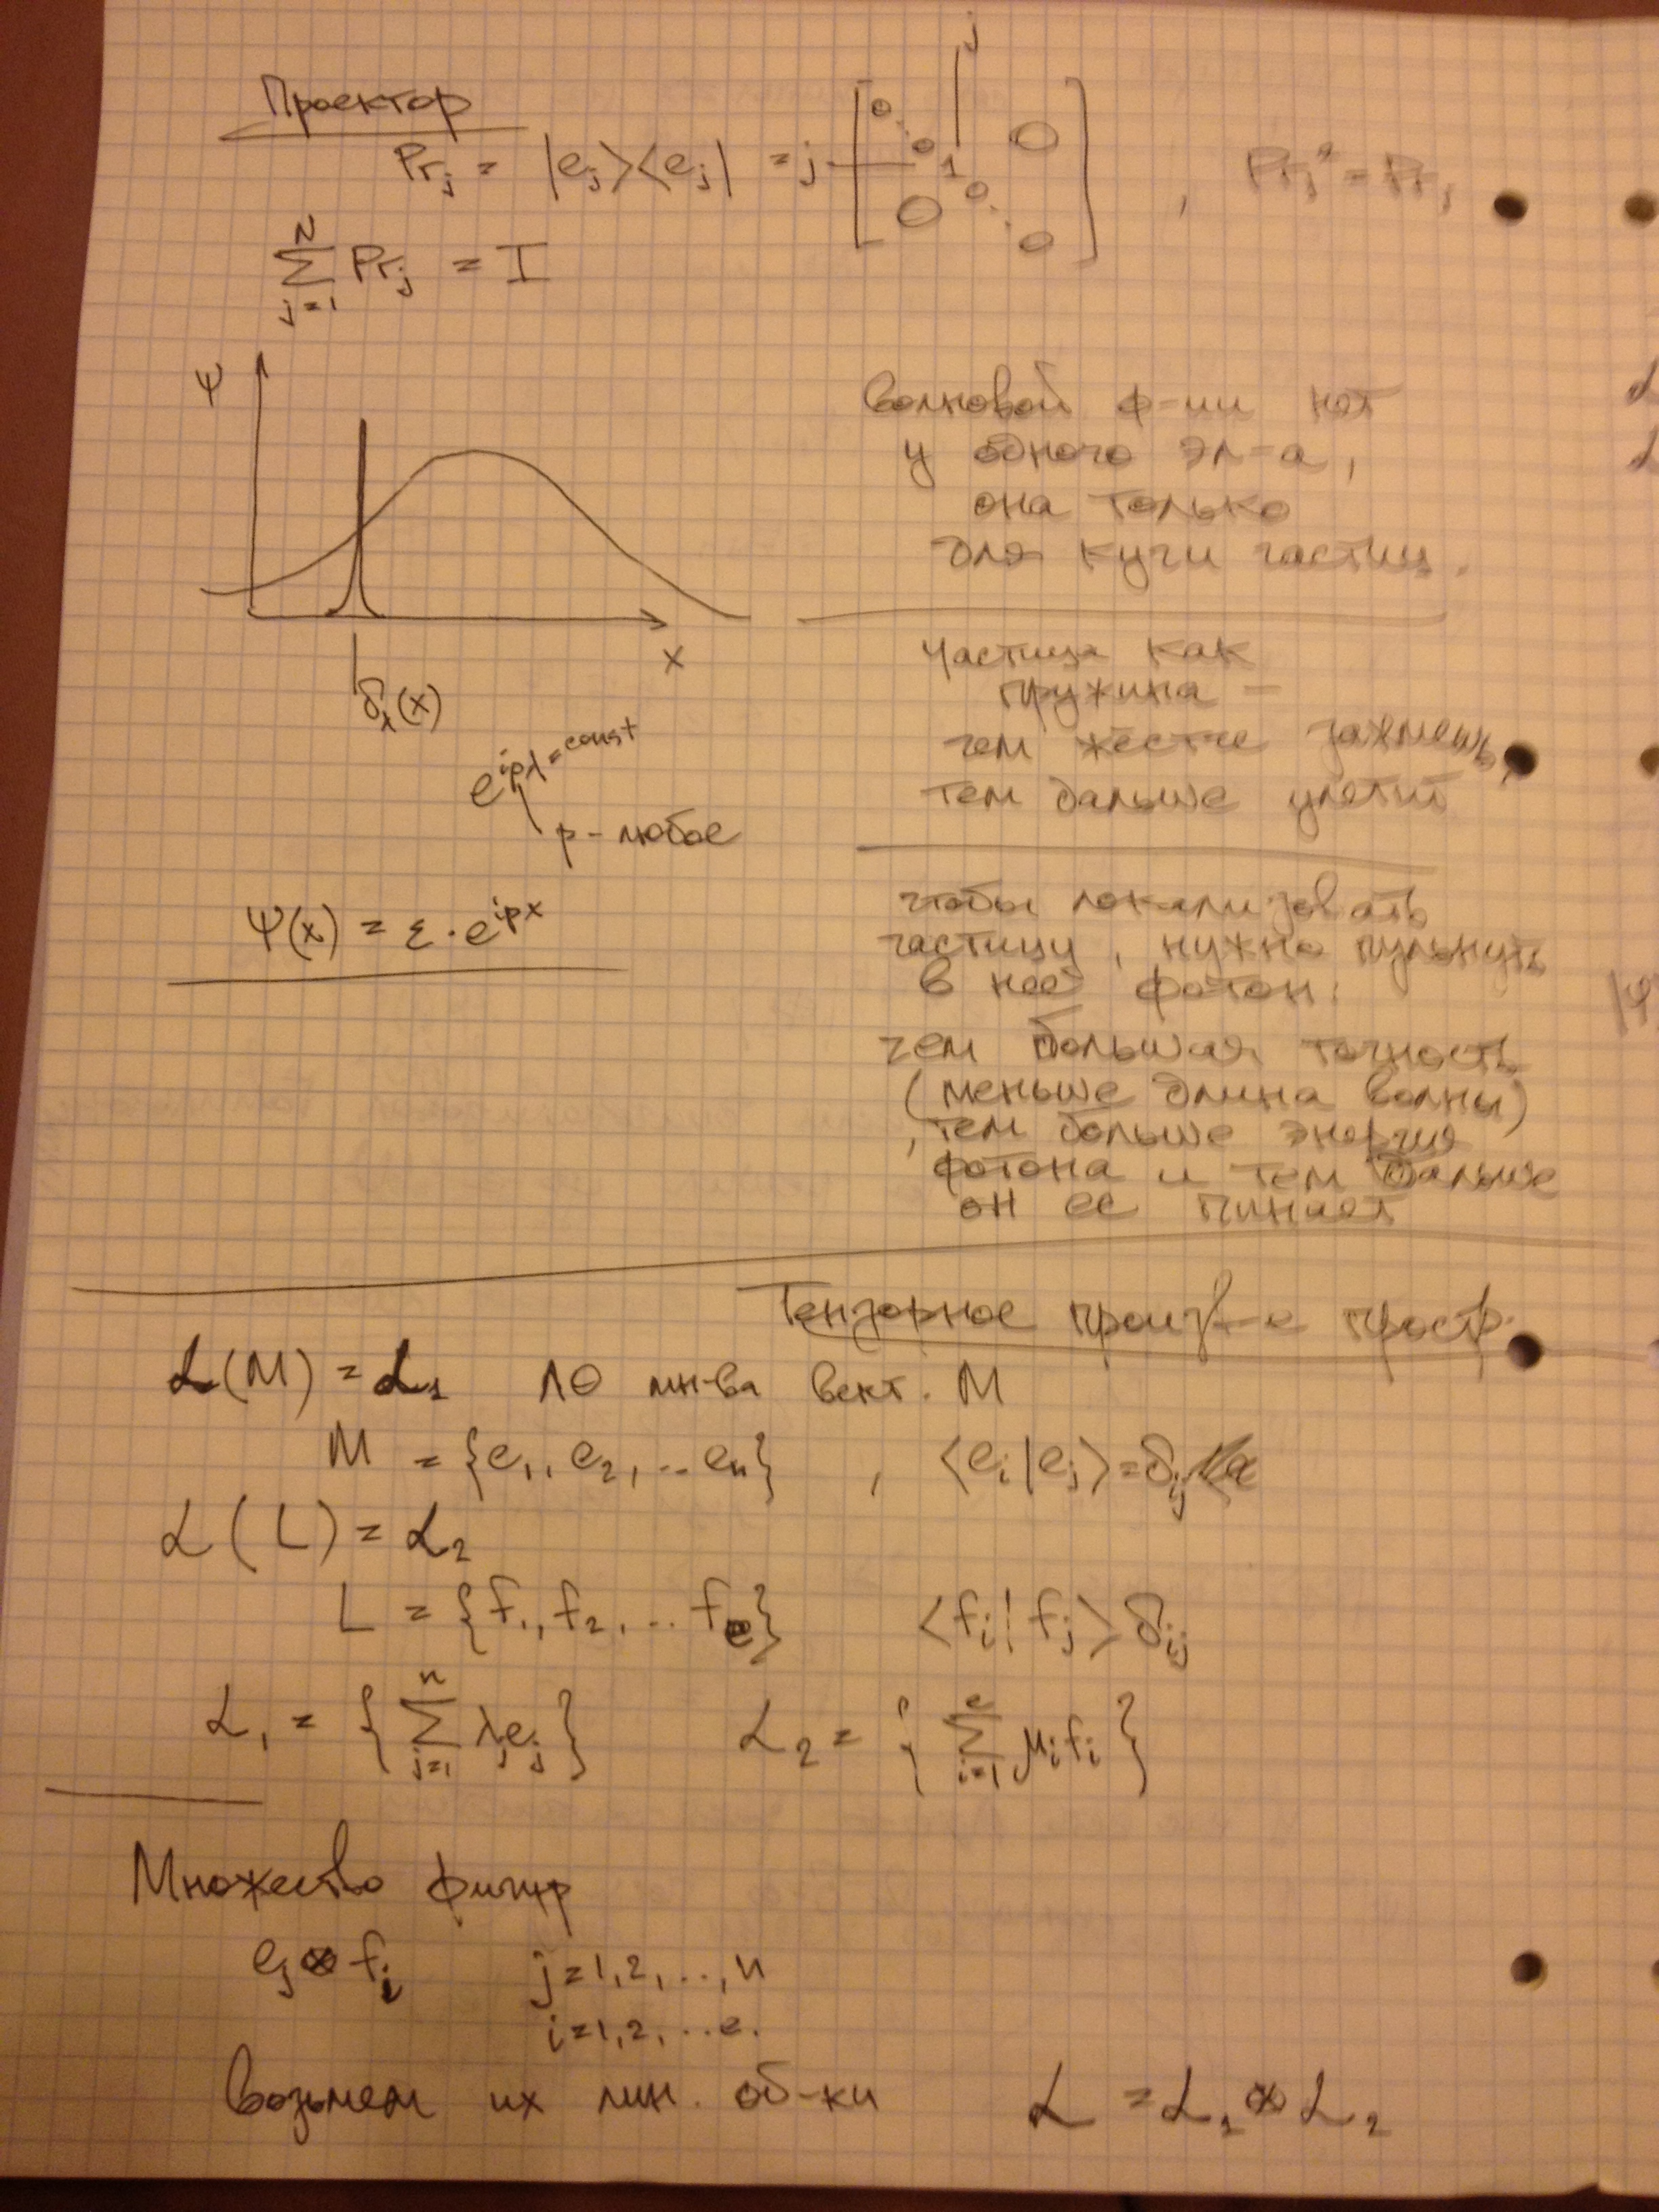 Проектор
Pr_j = |e_j><e_j| = j [ 0 ⋱ 0 1 0 ⋱ 0 ] j , Pr_j² = Pr_j
∑_{j=1}^{N} Pr_j = I
ψ
x
δ_λ(x)
e^{ipλ} = const
p - любое
ψ(x) = ε · e^{ipx}
Волновой ф-ии нет
у одного эл-а,
она только
для кучи частиц.
Частица как
пружина –
чем жёстче зажмешь,
тем дальше улетит
чтобы локализовать
частицу, нужно пульнуть
в неё фотон:
чем большая точность
(меньше длина волны)
, тем больше энергия
фотона и тем дальше
он её пинает
Тензорное произв-е простр.
ℒ(M) = ℒ₁ ЛО мн-ва вект. M
M = {e₁, e₂, .. e_n} , <e_i|e_j> = δ_ij
ℒ(L) = ℒ₂
L = {f₁, f₂, ... f_ℓ} <f_i|f_j> δ_ij
ℒ₁ = { ∑_{j=1}^{n} λ_j e_j } ℒ₂ = { ∑_{i=1}^{ℓ} μ_i f_i }
Множество фигур
e_j ⊗ f_i j = 1,2, ..., n
i = 1,2, ..ℓ.
Возьмем их лин. об-ки ℒ = ℒ₁ ⊗ ℒ₂